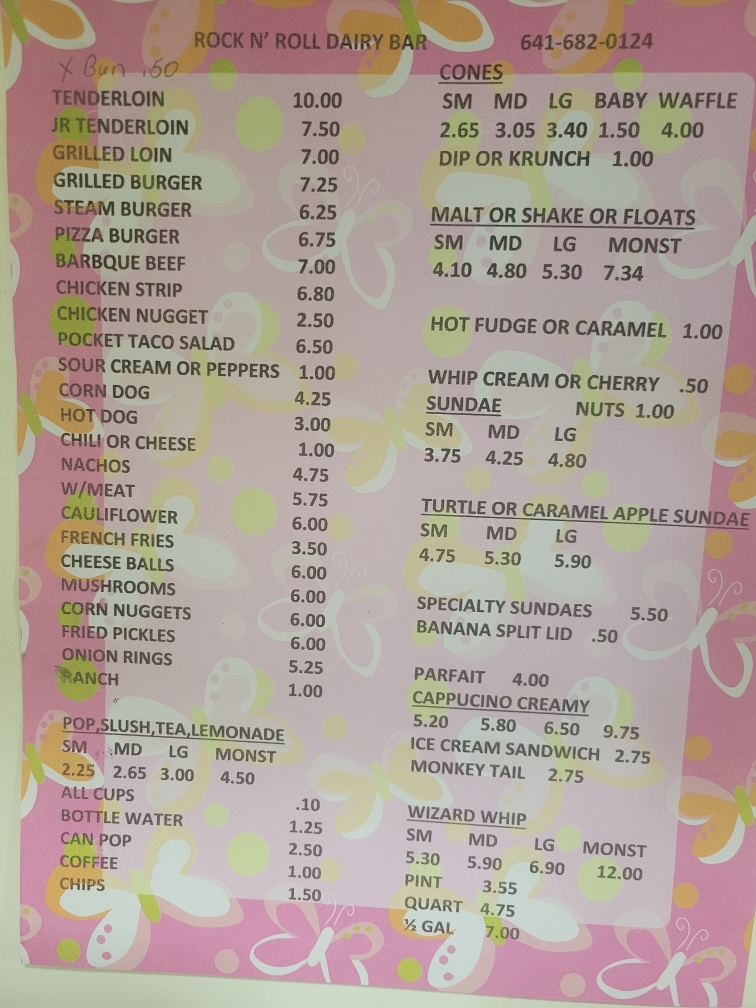 ROCK N' ROLL DAIRY BAR 641-682-0124
X Bun .50
TENDERLOIN 10.00
JR TENDERLOIN 7.50
GRILLED LOIN 7.00
GRILLED BURGER 7.25
STEAM BURGER 6.25
PIZZA BURGER 6.75
BARBQUE BEEF 7.00
CHICKEN STRIP 6.80
CHICKEN NUGGET 2.50
POCKET TACO SALAD 6.50
SOUR CREAM OR PEPPERS 1.00
CORN DOG 4.25
HOT DOG 3.00
CHILI OR CHEESE 1.00
NACHOS 4.75
W/MEAT 5.75
CAULIFLOWER 6.00
FRENCH FRIES 3.50
CHEESE BALLS 6.00
MUSHROOMS 6.00
CORN NUGGETS 6.00
FRIED PICKLES 6.00
ONION RINGS 5.25
RANCH 1.00
POP,SLUSH,TEA,LEMONADE
SM MD LG MONST
2.25 2.65 3.00 4.50
ALL CUPS .10
BOTTLE WATER 1.25
CAN POP 2.50
COFFEE 1.00
CHIPS 1.50
CONES
SM MD LG BABY WAFFLE
2.65 3.05 3.40 1.50 4.00
DIP OR KRUNCH 1.00
MALT OR SHAKE OR FLOATS
SM MD LG MONST
4.10 4.80 5.30 7.34
HOT FUDGE OR CARAMEL 1.00
WHIP CREAM OR CHERRY .50
SUNDAE NUTS 1.00
SM MD LG
3.75 4.25 4.80
TURTLE OR CARAMEL APPLE SUNDAE
SM MD LG
4.75 5.30 5.90
SPECIALTY SUNDAES 5.50
BANANA SPLIT LID .50
PARFAIT 4.00
CAPPUCINO CREAMY
5.20 5.80 6.50 9.75
ICE CREAM SANDWICH 2.75
MONKEY TAIL 2.75
WIZARD WHIP
SM MD LG MONST
5.30 5.90 6.90 12.00
PINT 3.55
QUART 4.75
½ GAL 7.00